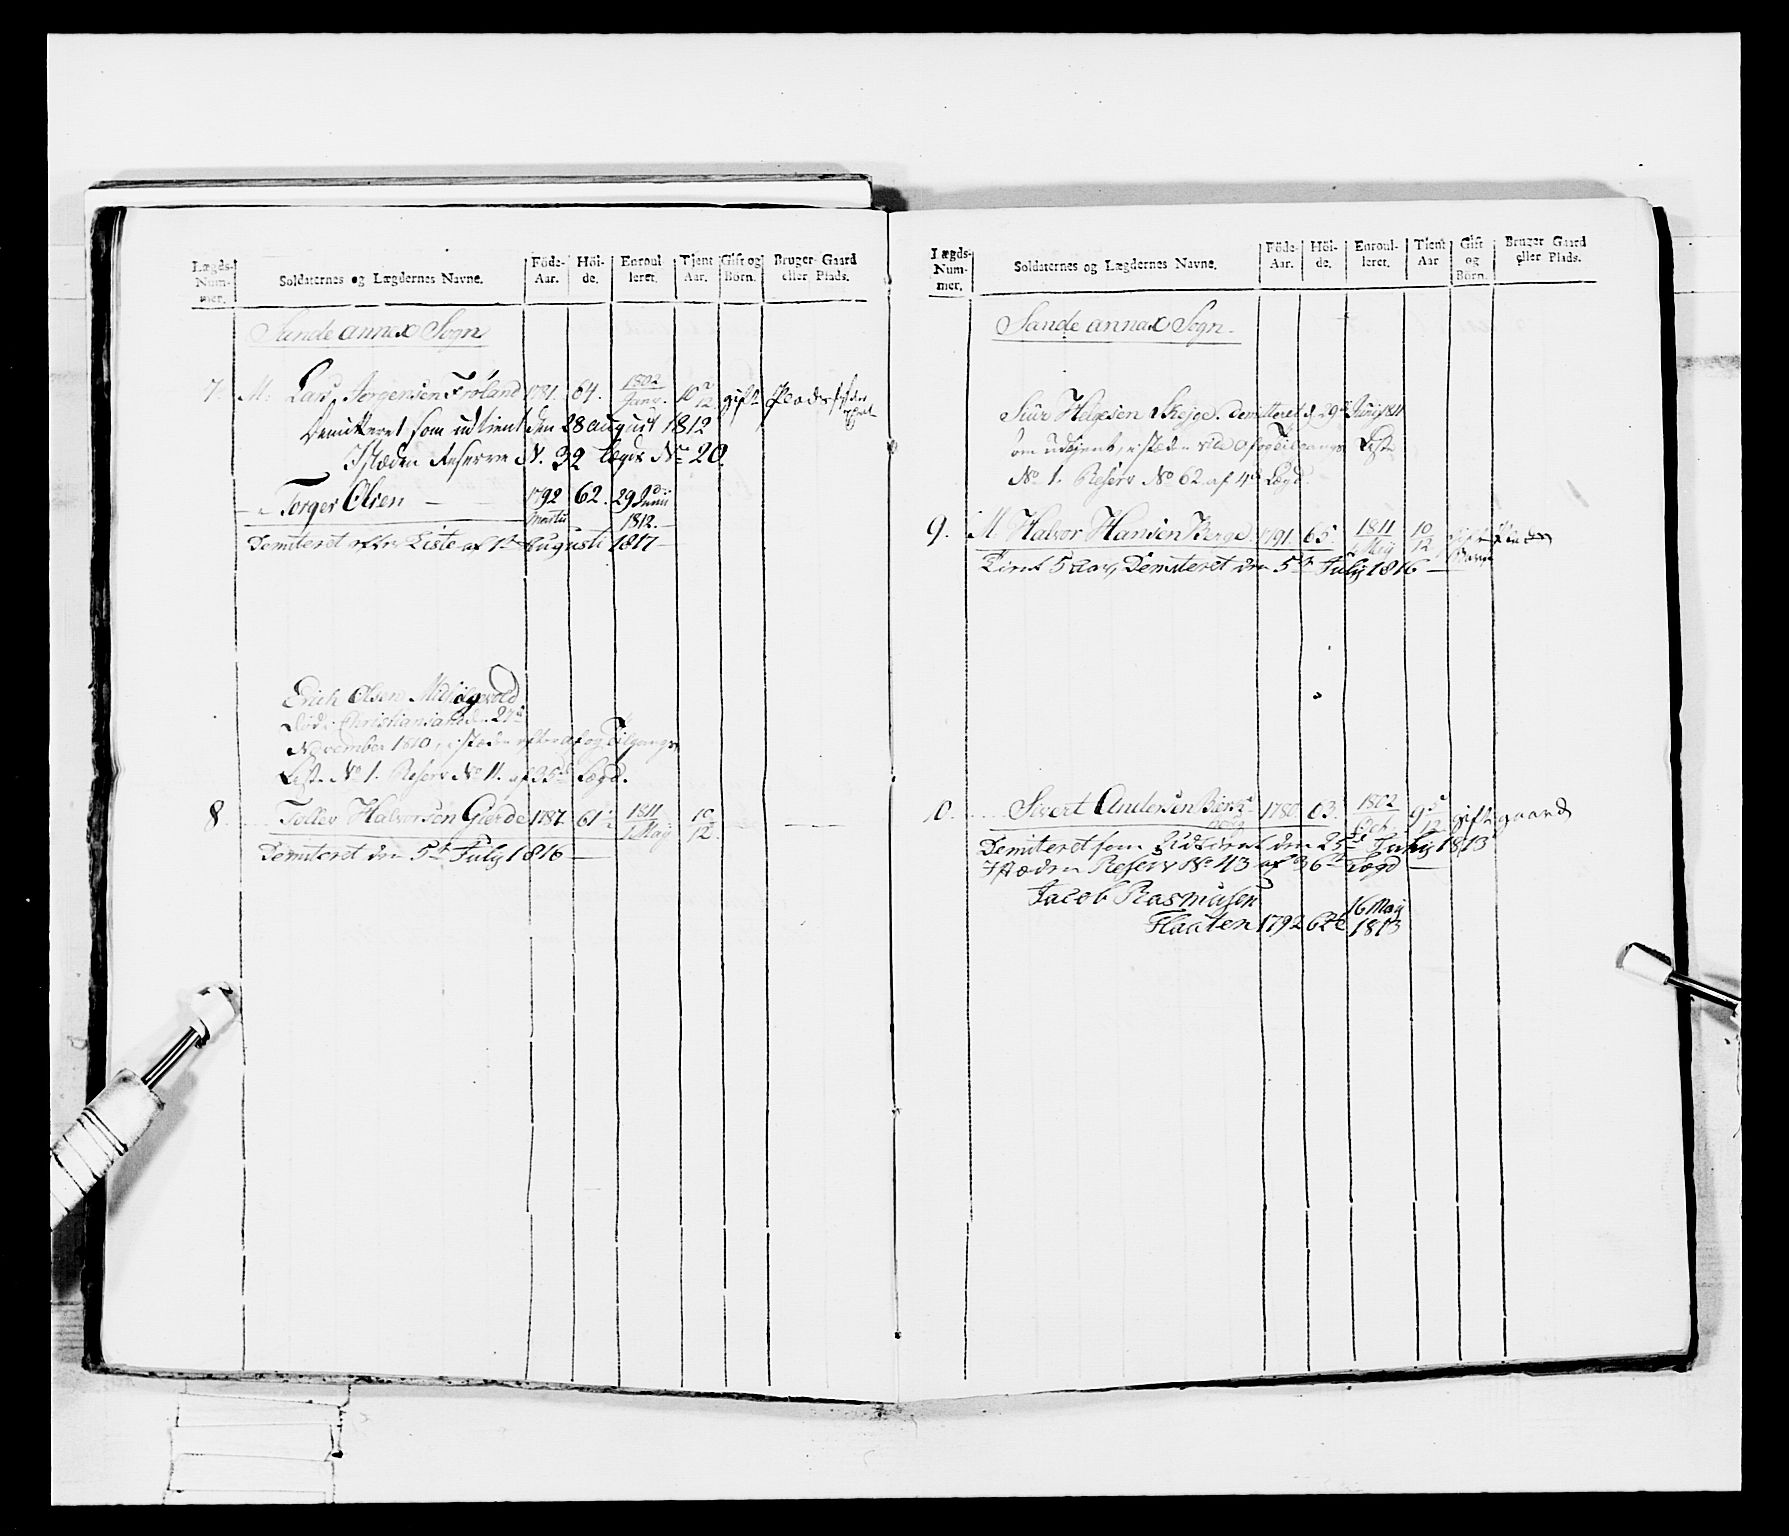 Lægds-Num-mer. Soldaternes og Lægdernes Navne. Föde-Aar. Höi-de. Enroul-leret. Tjent Aar. Gift og Börn. Bruger Gaard eller Plads.
Sande annex Sogn
7. M: Lars Jörgensen Fröland 1781. 64. 1802 Janv. 10 /12 gift Plads
Demitteret som udtient den 28 august 1812
Istæden Reserve N. 32 Lægd No 20.
Torger Olsen — 1792 62. 29 Junii 1812.
Demiteret efter Liste af 1te Augusti 1817
Erich Olsen
död i Christiansand d. 27de
November 1810, istæden efter af og Tilgangs
Liste No 1. Reserv No 11. af 35te Lægd.
8. Tollev Halvorsen Gierde 1787. 61 1811 1 Maij 10/12. — —
Demiteret den 5te July 1816 —
Lægds-Num-mer. Soldaternes og Lægdernes Navne. Föde-Aar. Höi-de. Enroul-leret. Tient Aar Gift og Börn. Bruger Gaard eller Plads.
Sande annex Sogn.
Siur Helgesen Skejge. demitteret d. 29de Junij 1811
om udtjent, istæden vide af og Tilgangs Liste
No 1. Reserv No 62 af 4de Lægd.
9. M. Halvor Hansen Berge. 1791. 65. 1811 Maij 10/12
Tient 5 aar, Demiteret den 5te July 1816 —
10. Sivert Andersen 1780. 63. 1802 9 /12 gift gaard
Demiteret som Udtient den 25de July 1813
Istæden Reserv No 43 af 36te Lægd —
Jacob Rasmusen
Flaaten 1792 62 16 Maij 1813